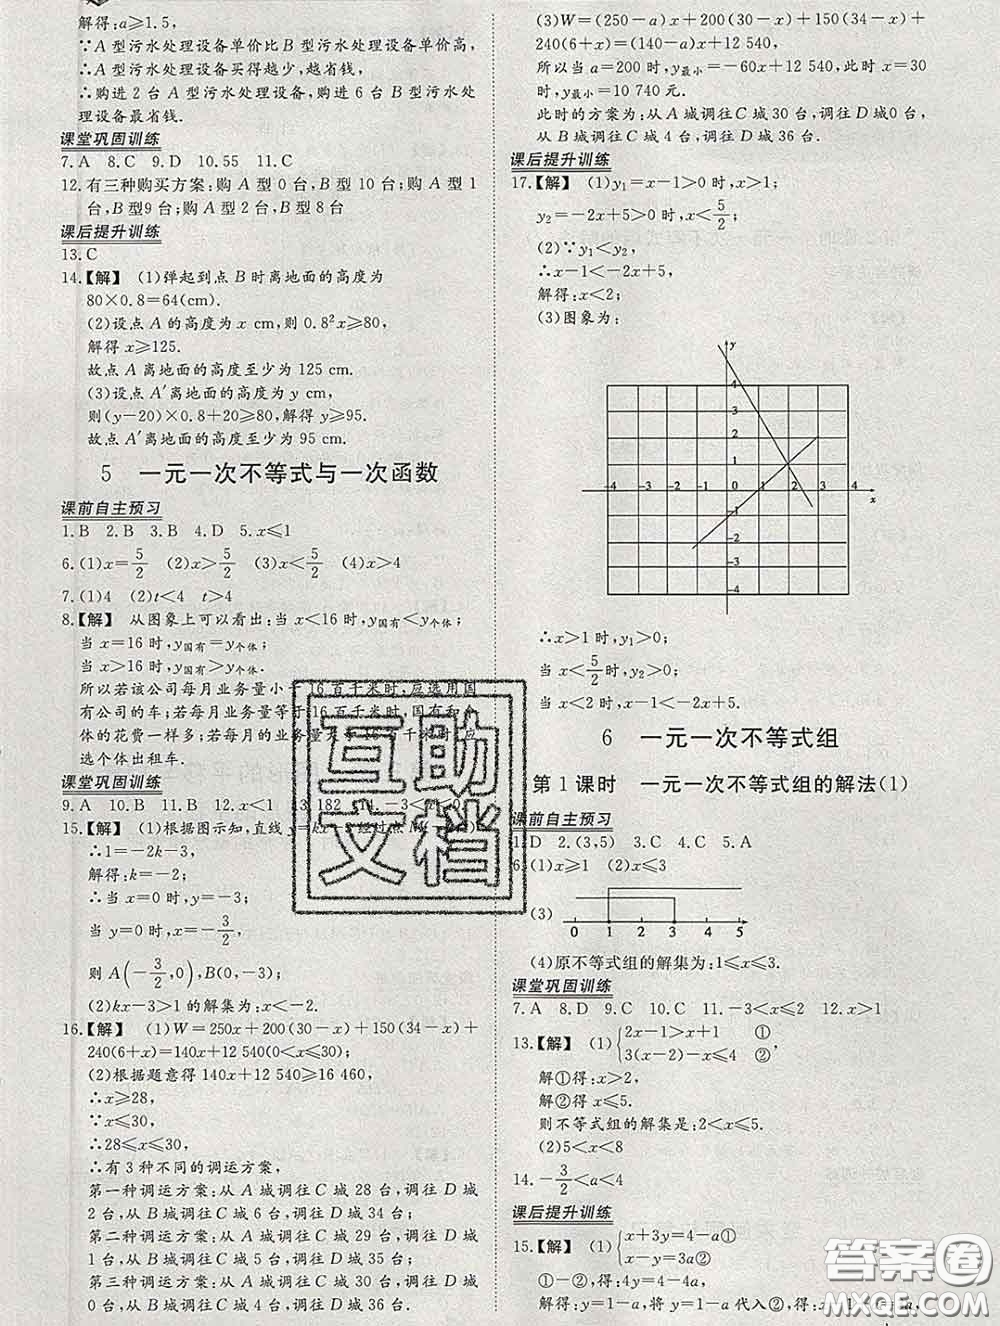 解得:a⩾1.5,
∵A型污水处理设备单价比B型污水处理设备单价高,
∴A型污水处理设备买得越少,越省钱,
∴购进2台A型污水处理设备,购进6台B型污水处
理设备最省钱.
课堂巩固训练
7.A 8.C 9.D 10.55 11.C
12.有三种购买方案:购A型0台,B型10台;购A型1
台,B型9台;购A型2台,B型8台
课后提升训练
13.C
14.【解】 (1)弹起到点B时离地面的高度为
80×0.8=64(cm).
(2)设点A的高度为x cm,则0.8²x⩾80,
解得x⩾125.
故点A离地面的高度至少为125 cm.
(3)设点A′离地面的高度为y cm,
则(y-20)×0.8+20⩾80,解得y⩾95.
故点A′离地面的高度至少为95 cm.
5 一元一次不等式与一次函数
课前自主预习
1.B 2.B 3.B 4.D 5.x⩽1
6.(1)x=5/2 (2)x>5/2 (3)x<5/2 (4)x>4
7.(1)4 (2)t<4 t>4
8.【解】 从图象上可以看出:当x<16时,y国有<y个体;
当x=16时,y国有=y个体;
当x>16时,y国有>y个体.
所以若该公司每月业务量小于16百千米时,应选用国
有公司的车;若每月业务量等于16百千米时,国有和个
体的花费一样多;若每月的业务量大于16百千米时,应
选个体出租车.
课堂巩固训练
9.A 10.B 11.B 12.x<1 13.182 14.-3<x<0
15.【解】 (1)根据图示知,直线y=kx-3经过点M(-2,1)
∴1=-2k-3,
解得:k=-2;
∴当x=0时,y=-3;
当y=0时,x=-3/2,
则A(-3/2,0),B(0,-3);
(2)kx-3>1的解集为:x<-2.
16.【解】 (1)W=250x+200(30-x)+150(34-x)+
240(6+x)=140x+12 540(0<x⩽30);
(2)根据题意得140x+12 540⩾16 460,
∴x⩾28,
∵x⩽30,
∴28⩽x⩽30,
∴有3种不同的调运方案,
第一种调运方案:从A城调往C城28台,调往D城
2台,从B城调往C城6台,调往D城34台;
第二种调运方案:从A城调往C城29台,调往D城
1台,从B城调往C城5台,调往D城35台;
第三种调运方案:从A城调往C城30台,调往D城
0台,从B城调往C城4台,调往D城36台.
(3)W=(250-a)x+200(30-x)+150(34-x)+
240(6+x)=(140-a)x+12 540,
所以当a=200时,y最小=-60x+12 540,此时x=30
时,y最小=10 740元.
此时的方案为:从A城调往C城30台,调往D城0台,
从B城调往C城4台,调往D城36台.
课后提升训练
17.【解】 (1)y₁=x-1>0时,x>1;
y₂=-2x+5>0时,x<5/2;
(2)∵y₁<y₂,
∴x-1<-2x+5,
解得:x<2;
(3)图象为:
y
4
3
2
1
-4 -3 -2 -1 0 1 2 3 4
x
-1
-2
-3
-4
∴x>1时,y₁>0;
当x<5/2时,y₂>0;
当x<2时,x-1<-2x+5.
6 一元一次不等式组
第1课时 一元一次不等式组的解法(1)
课前自主预习
1.D 2.(3,5) 3.C 4.C 5.A
6.(1)x⩾1 (2)x⩽3
(3)
0 1 2 3 4 5
(4)原不等式组的解集为:1⩽x⩽3.
课堂巩固训练
7.A 8.D 9.C 10.C 11.-3<x⩽2 12.x>1
13.【解】 (1){2x-1>x+1 ①
3(x-2)-x⩽4 ②,
解①得:x>2,
解②得:x⩽5.
则不等式组的解集是:2<x⩽5.
(2)5<x<8
14.-3/2<a<4
课后提升训练
15.【解】 (1){x+3y=4-a①
x-y=3a②
①-②,得:4y=4-4a,
解得:y=1-a,将y=1-a代入②,得:x
互助
文档
答案圈